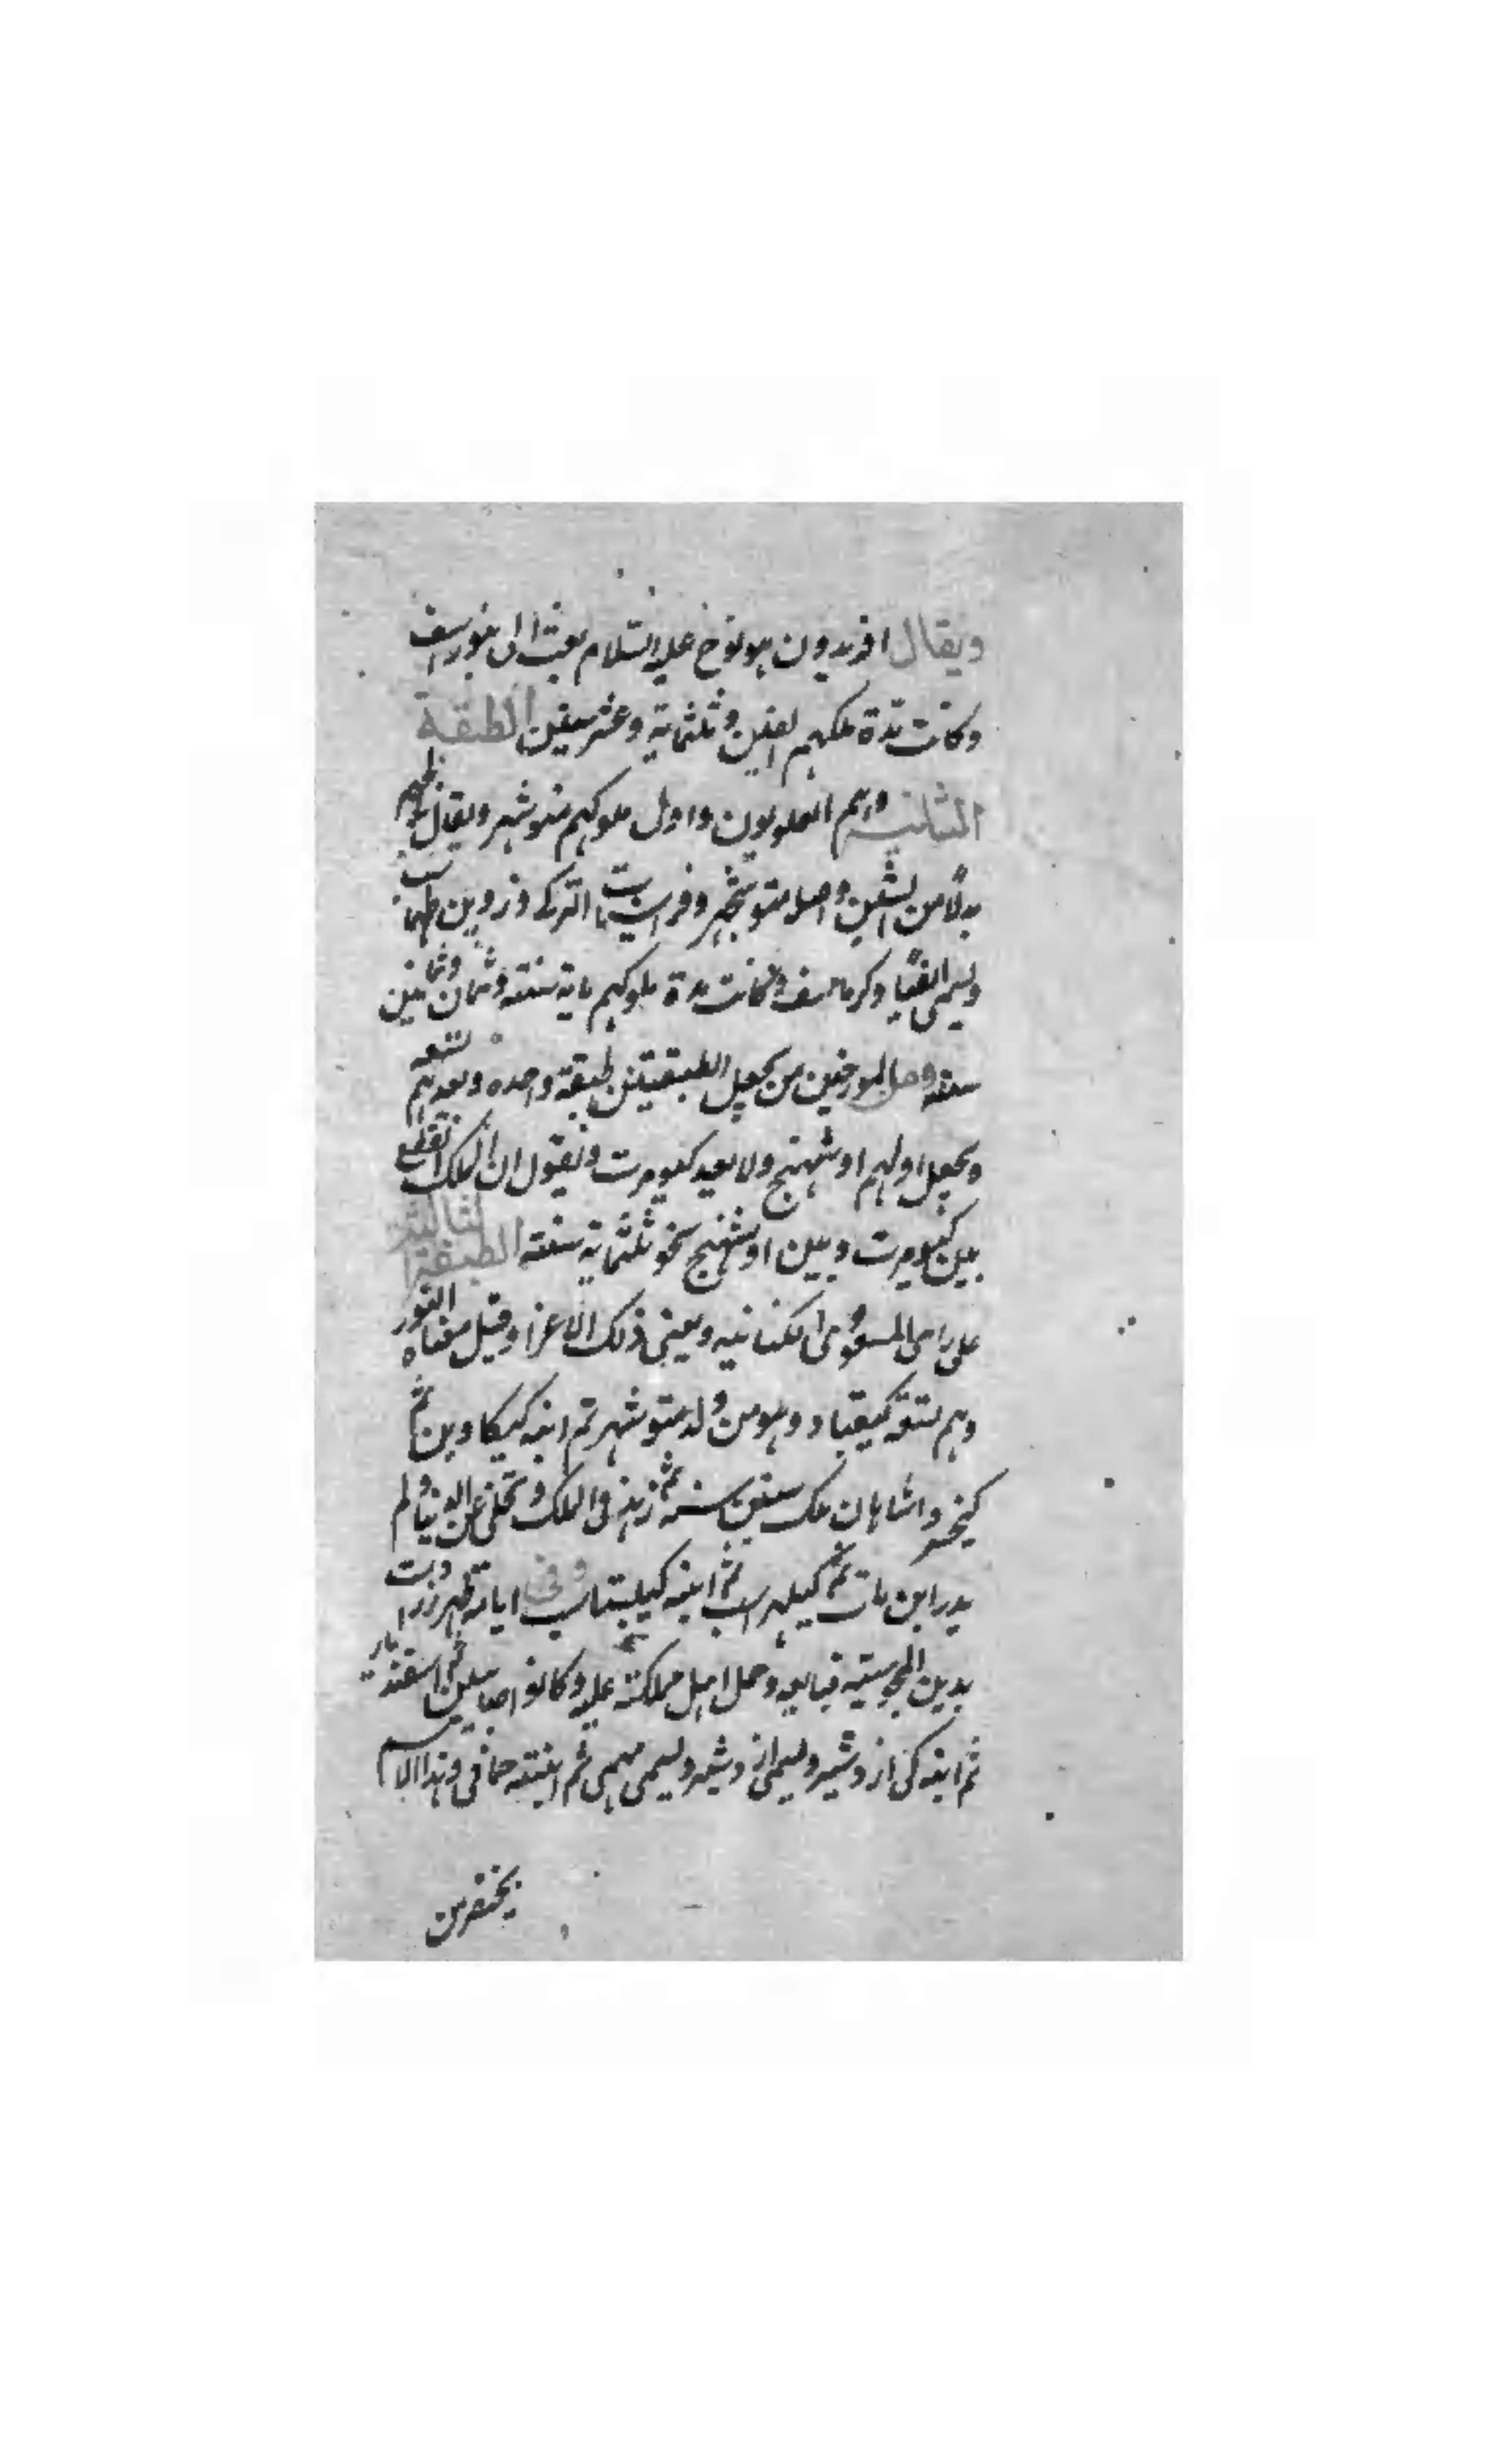 ويقال افريدون هو نوح عليه السلام بعث الى بيوراسف
وكانت مدة ملكهم الفين وثلثماية وعشر سنين الطبقة
الثانية وهم العلويون واول ملوكهم منوشهر ويقال بالجيم
بدلا من الشين واصله منوشجهر وفراسيات التركى وزو بن طهماسب
ويسمى ايضا وكرماسف وكانت مدة ملوكهم ماية سنته وثمان وثمانين
سنته ومن المورخين من يجعل الطبقيتين طبقة واحده وبعدهم تسعه
ويجعل اولهم اوشهنج ولا يعد كيومرت ويقول ان الملك انقطع
بين كيومرت وبين اوشهنج نحو ثلثماية سنته الطبقة الثالثة
على راى المسعودى الكنانيه ويعنى ذلك الاعزا وقيل معناه النور
وهم تسعة كيقباد وهو من ولد منوشهر ثم ابنه كيكاوس ثم
كيخسرو اشاهان ملك ستين سنه ثم زهد فى الملك وتخلى عن الدنيا ولم
يدر اين مات ثم كيلهراسب ثم ابنه كيبشتاسب وفى ايامه ظهر زرادشت
بدين المجوسيه فبايعه وحمل اهل مملكته عليه وكانوا صابيين ثم اسفنديار
ثم ابنه كى ازدشير ويسمى ازدشير ويسمى بهمن ثم ابنته خمانى وهذا الاسم
يختص من